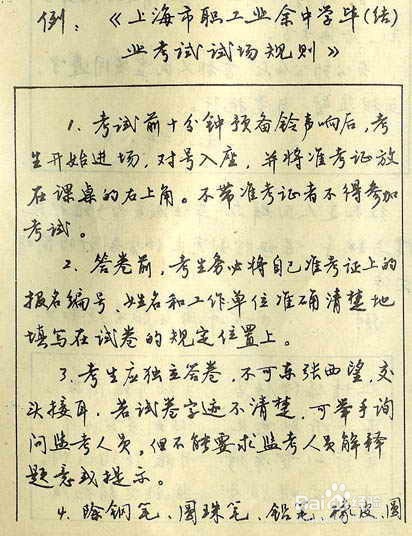 例：《上海市职工业余中学毕(结)
业考试试场规则》
1. 考试前十分钟预备铃声响后，考
生开始进场，对号入座，并将准考证放
在课桌的右上角。不带准考证者不得参加
考试。
2. 答卷前，考生务必将自己准考证上的
报名编号、姓名和工作单位准确清楚地
填写在试卷的规定位置上。
3. 考生应独立答卷，不可东张西望，交
头接耳。若试卷字迹不清楚，可举手询
问监考人员，但不能要求监考人员解释
题意或提示。
4. 除钢笔、圆珠笔、铅笔、橡皮、圆
Baidu经验